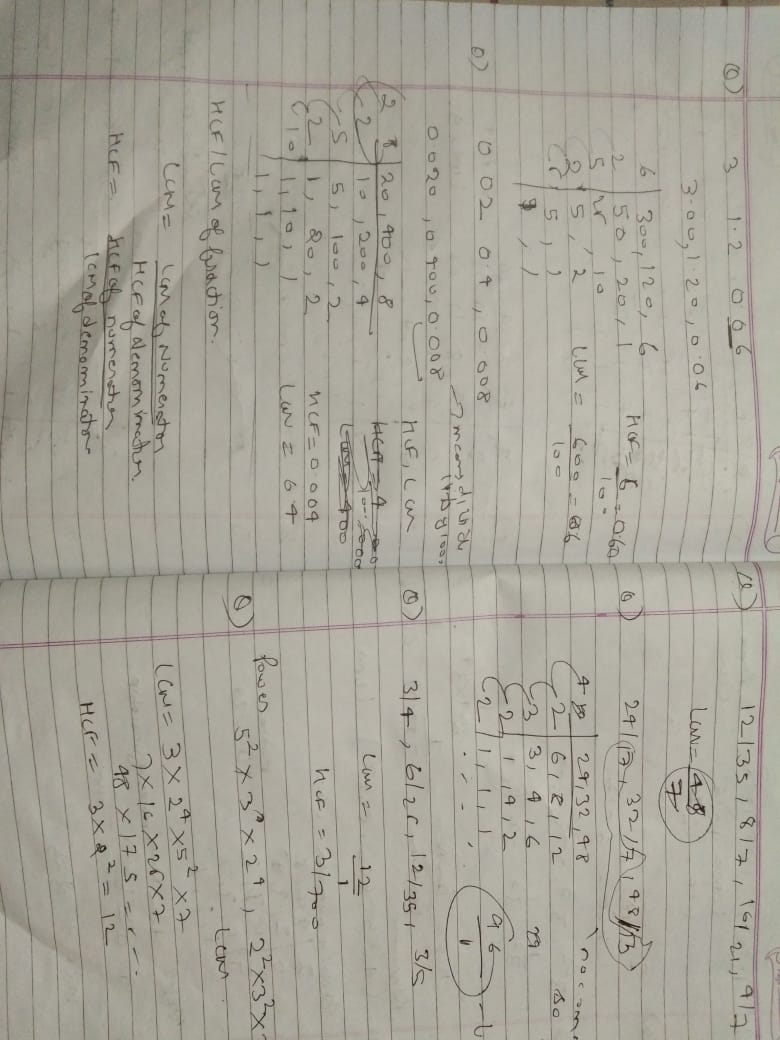 Q) 3 1.2 0.06
3.00, 1.20, 0.06
6 300, 120, 6
2 50, 20, 1
5 25 10
2 5, 2
5, 1
HCF = 6/100 = 0.60
LCM = 600/100 = 606
Q) 0.02 0.4, 0.008
0.020, 0.400, 0.008 HCF, LCM
→ means divide it by 1000
2 20, 400, 8
2 10, 200, 4
5 5, 100, 2
2 1, 20, 2
10 1, 10, 1
1, 1, 1
HCF = 4
LCM = 400
HCF = 0.004
LCM = 6.4
HCF/LCM of fraction.
LCM = LCM of Numerator
HCF of denomination.
HCF = HCF of numerator
LCM of denomination
12/35, 8/7, 16/21, 9/7
LCM = 48/7
Q) 24/17, 32/17, 48/13
4 24, 32, 48
2 6, 8, 12
3 3, 4, 6
2 1, 4, 2
2 1, 1, 1
96/1
Q) 3/4, 6/25, 12/35, 3/5
LCM = 12/1
HCF = 3/700
Q) Power 5² × 3² × 2⁴, 2² × 3² ×
LCM
LCM = 3 × 2⁴ × 5² × 7
3 × 16 × 25 × 7
48 × 175 =
HCF = 3 × 2² = 12